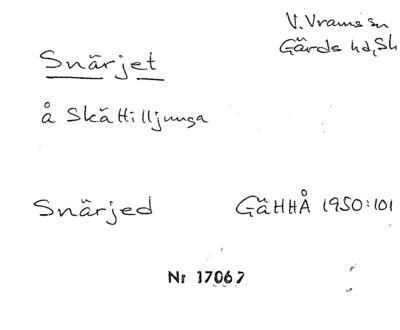 V. Vrams sn
Gärds hd, Sk
Snärjet
å Skättilljunga
Snärjed GäHHÅ 1950:101
Nr 17067